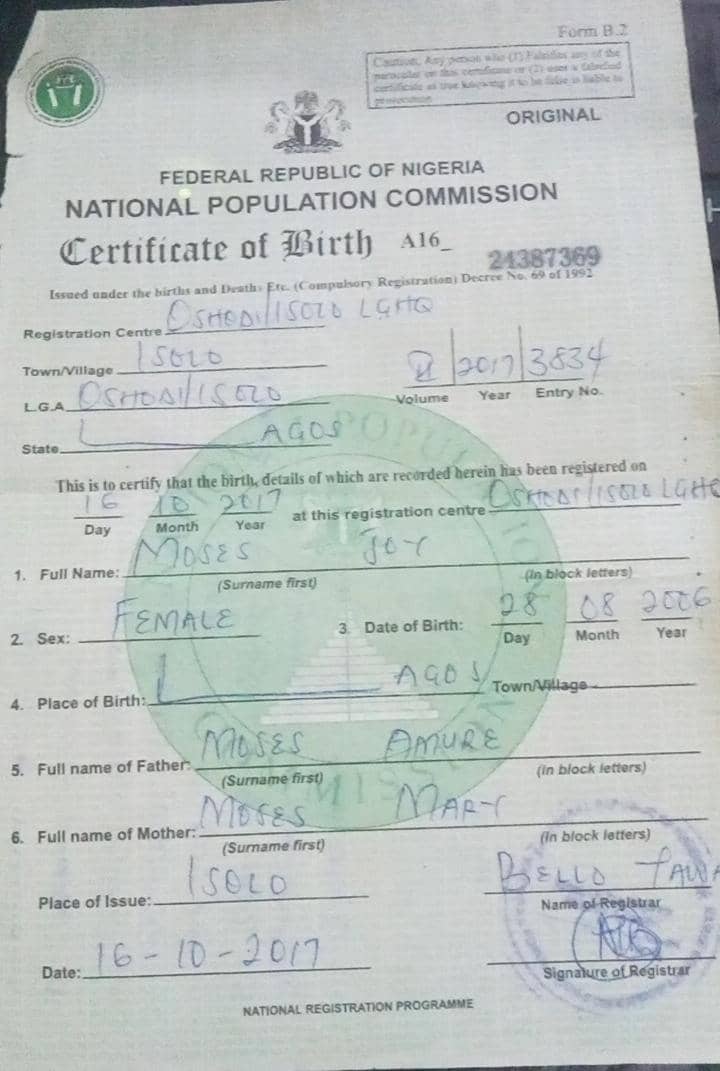 Form B.2
Caution, Any person who (1) Falsifies any of the
particular on this certificate or (2) uses a falsified
certificate as true knowing it to be false is liable to
prosecution
ORIGINAL
FEDERAL REPUBLIC OF NIGERIA
NATIONAL POPULATION COMMISSION
Certificate of Birth A16_ 24387369
Issued under the births and Deaths Etc. (Compulsory Registration) Decree No. 69 of 1992
Registration Centre OSHODI/ISOLO LGHQ
Town/Village ISOLO
2017 3834
L.G.A OSHODI/ISOLO
Volume Year Entry No.
State LAGOS
This is to certify that the birth, details of which are recorded herein has been registered on
16 10 2017 at this registration centre OSHODI/ISOLO LGHQ
Day Month Year
1. Full Name: MOSES JOY
(Surname first) (in block letters)
2. Sex: FEMALE 3 Date of Birth: 28 08 2006
Day Month Year
4. Place of Birth: LAGOS Town/Village
5. Full name of Father: MOSES AMURE
(Surname first) (in block letters)
6. Full name of Mother: MOSES MARY
(Surname first) (in block letters)
Place of Issue: ISOLO BELLO
Name of Registrar
Date: 16-10-2017
Signature of Registrar
NATIONAL REGISTRATION PROGRAMME